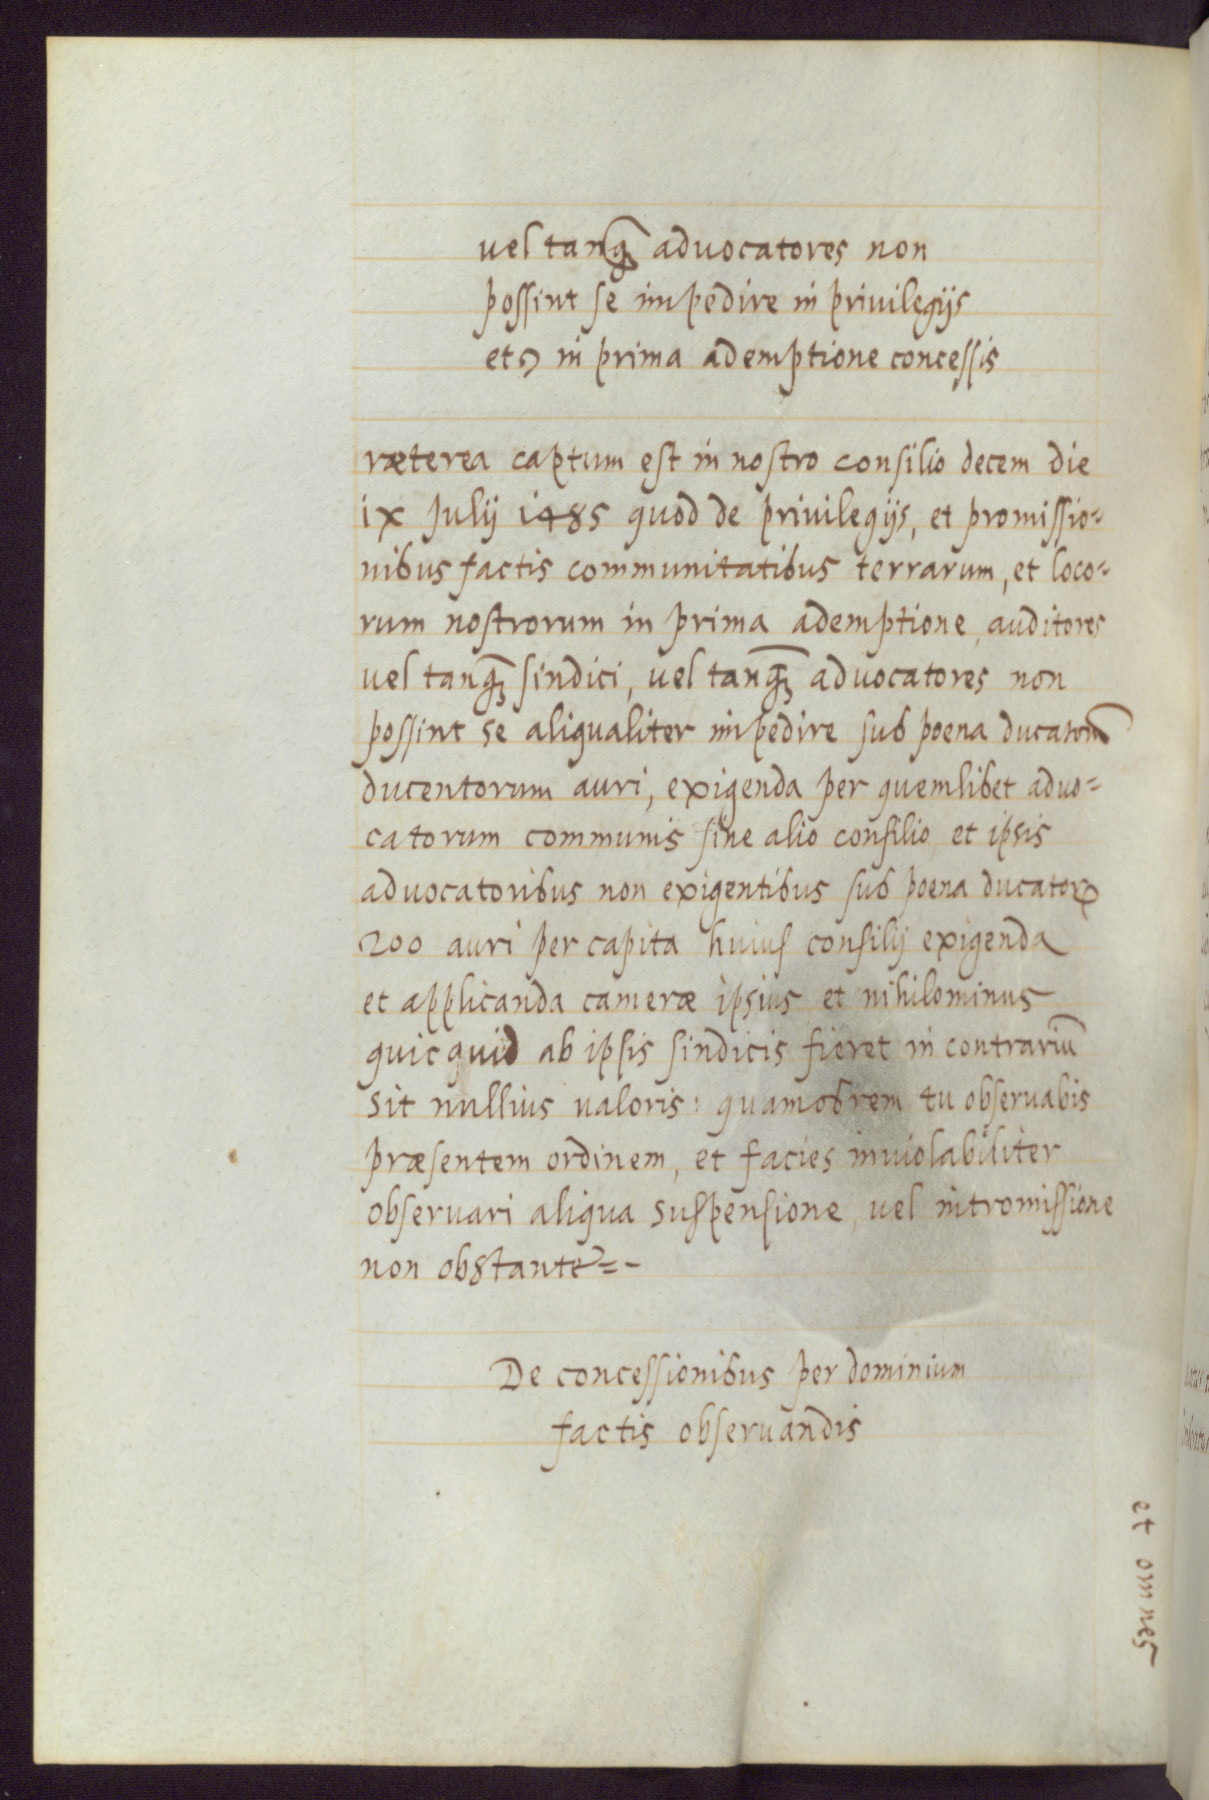 vel tanq̃ advocatores non
possint se impedire in privilegijs
etꝯ in prima ademptione concessis
ræterea captum est in nostro consilio decem die
ix Julij 1485 quod de privilegijs, et promissio=
nibus factis communitatibus terrarum, et loco=
rum nostrorum in prima ademptione, auditores
vel tanq̃ sindici, vel tanq̃ advocatores non
possint se aliqualiter impedire sub poena ducatorũ
ducentorum auri, exigenda per quemlibet advo=
catorum communis sine alio consilio et ipsis
advocatoribus non exigentibus sub poena ducatorꝝ
200 auri per capita huius consilij exigenda
et applicanda cameræ ipsius et nihilominus
quicquid ab ipsis sindicis fieret in contrariũ
sit nullius valoris: quamobrem tu observabis
præsentem ordinem, et facies inviolabiliter
observari aliqua suspensione, vel intromissione
non obstante=-
De concessionibus per dominium
factis observandis
et omnes